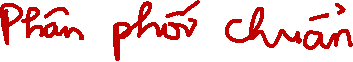 Phân phối chuẩn